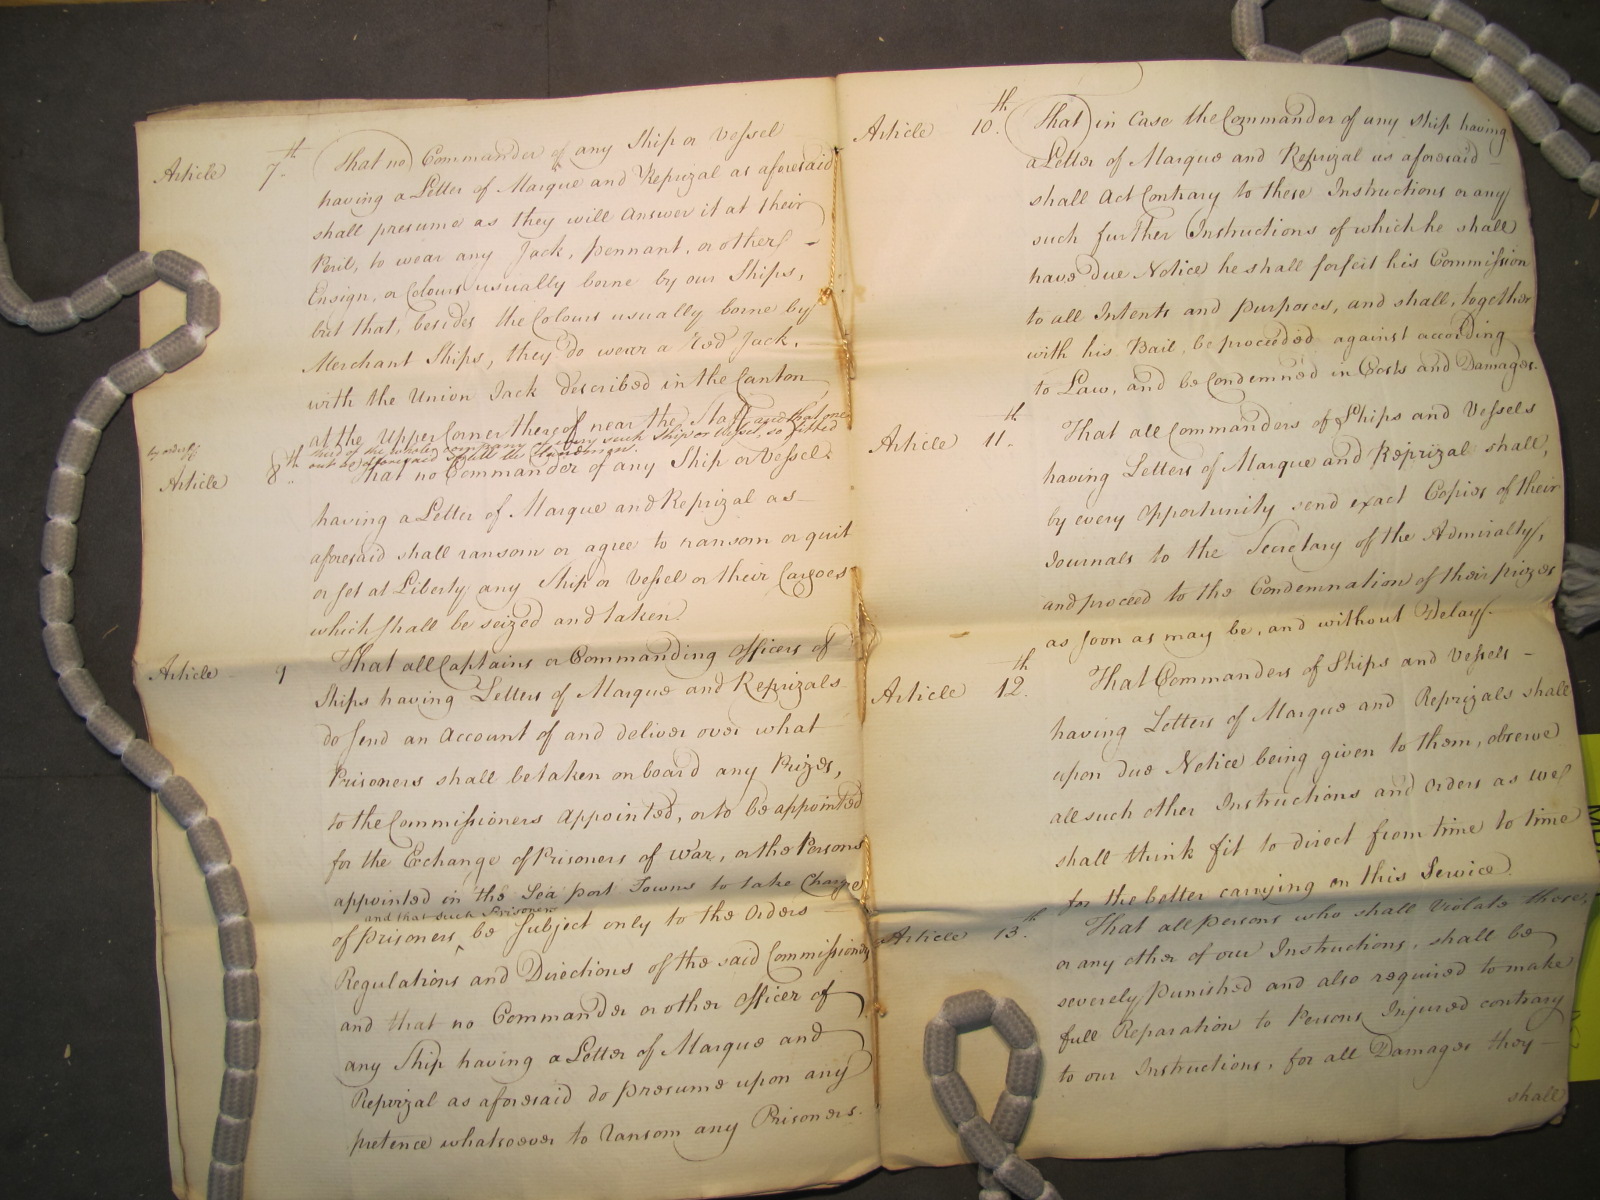 Article 7th That no Commander of any Ship or Vessel
having a Letter of Marque and Reprizal as aforesaid
shall presume as they will Answer it at their
Peril, to wear any Jack, Pennant, or other
Ensign, or Colours usually borne by our Ships,
but that, besides the Colours usually borne by
Merchant Ships, they do wear a Red Jack,
with the Union Jack described in the Canton
at the Upper Corner thereof near the Staff and that one
third of the whole company of every such Ship or Vessel, so fitted
out as aforesaid shall be Landsmen.
Article 8th That no Commander of any Ship or Vessel
having a Letter of Marque and Reprizal as
aforesaid shall ransom or agree to ransom or quit
or set at Liberty any Ship or Vessel or their Cargoes
which shall be seized and taken.
Article 9 That all Captains or Commanding Officers of
Ships having Letters of Marque and Reprizals
do send an Account of and deliver over what
Prisoners shall be taken on board any Prizes,
to the Commissioners Appointed, or to be appointed
for the Exchange of Prisoners of War, or the Persons
appointed in the Sea port Towns to take Charge
and that such Prisoners
of prisoners, ^ be Subject only to the Orders
Regulations and Directions of the said Commissioners
and that no Commander or other Officer of
any Ship having a Letter of Marque and
Reprizal as aforesaid do presume upon any
pretence whatsoever to Ransom any Prisoners.
Article 10th. That in Case the Commander of any Ship having
a Letter of Marque and Reprizal as aforesaid
shall Act Contrary to these Instructions or any
such further Instructions of which he shall
have due Notice he shall forfeit his Commission
to all Intents and purposes, and shall, together
with his Bail, be proceeded against according
to Law, and be Condemned in Costs and Damages.
Article 11th. That all Commanders of Ships and Vessels
having Letters of Marque and Reprizal shall,
by every Opportunity send exact Copies of their
Journals to the Secretary of the Admiralty,
and proceed to the Condemnation of their prizes
as soon as may be, and without Delay.
Article 12th. That Commanders of Ships and Vessels
having Letters of Marque and Reprizals shall
upon due Notice being given to them, observe
all such other Instructions and Orders as we
shall think fit to direct from time to time
for the better carrying on this Service.
Article 13th. That all persons who shall Violate these,
or any other of our Instructions, shall be
severely punished and also required to make
full Reparation to Persons Injured contrary
to our Instructions, for all Damages they
shall